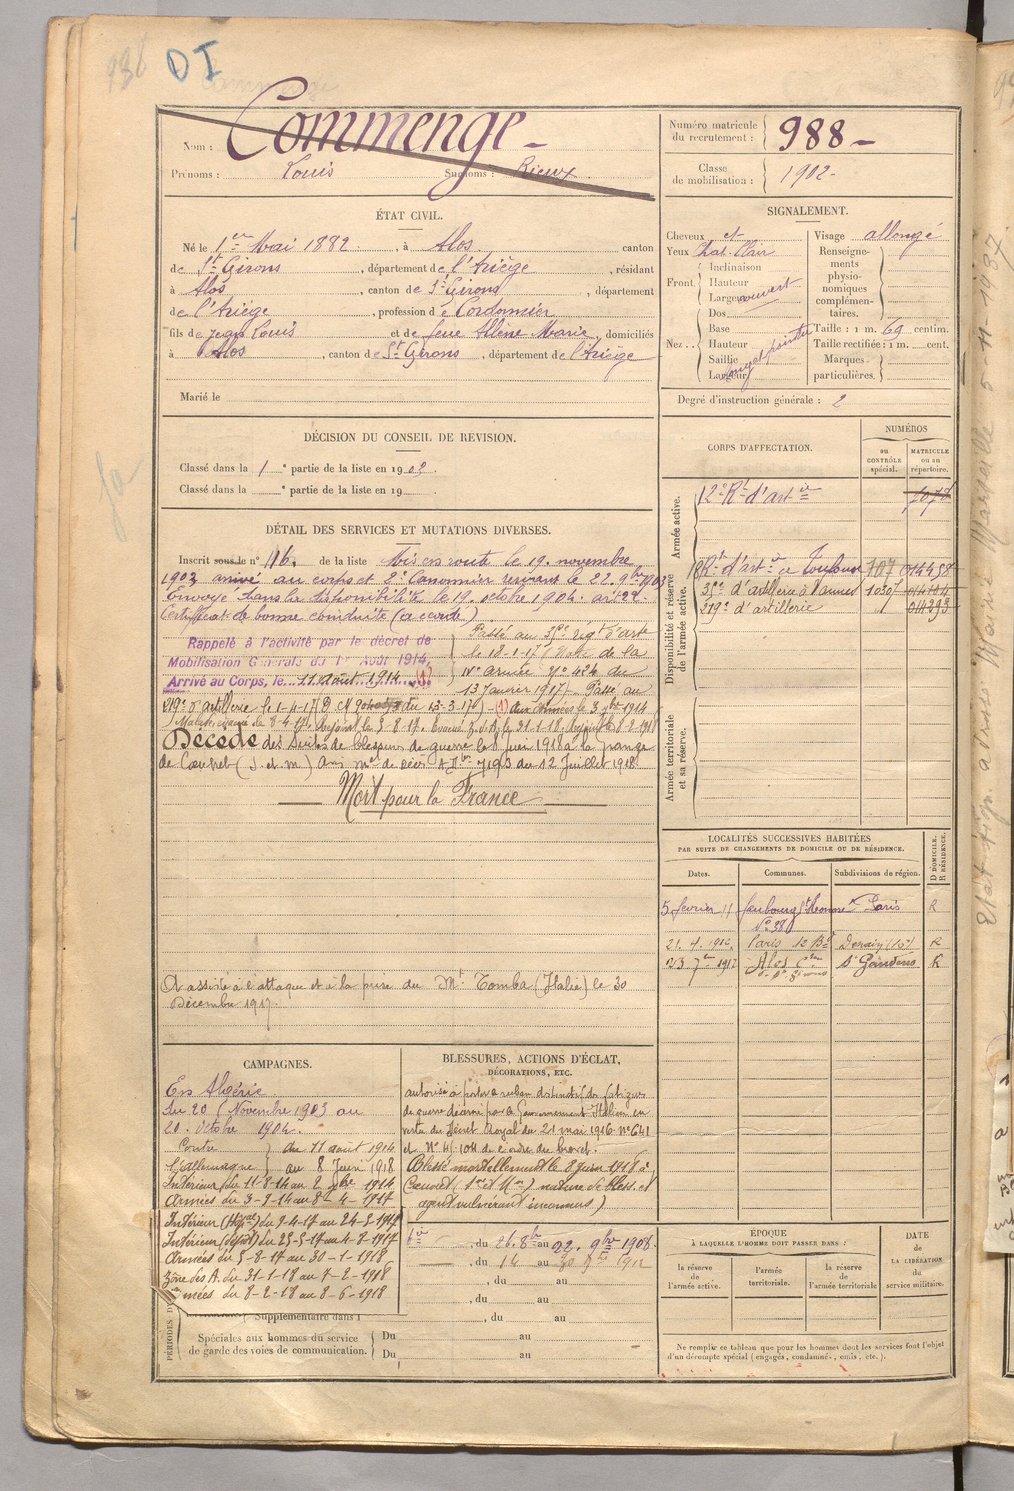 DI
Nom : Commenge
Prénoms : Louis Surnoms : Rieux
Numéro matricule du recrutement : 988
Classe de mobilisation : 1902
ÉTAT CIVIL.
Né le 1er Mai 1882, à Alos canton
de St Girons, département de l'Ariège, résidant
à Alos, canton de St Girons, département
de l'Ariège, profession de Cordonnier
fils de Jean Louis et de feue Allène Marie, domiciliés
à Alos, canton de St Girons, département de l'Ariège
Marié le
SIGNALEMENT.
Cheveux et
Yeux Chat. Clair
Front Inclinaison
Hauteur
Largeur ouvert
Nez Dos
Base
Hauteur
Saillie
Largeur
Visage allongé
Renseignements physionomiques complémentaires.
Taille : 1 m. 69 centim.
Taille rectifiée : 1 m. cent.
Marques particulières.
Degré d'instruction générale : 2
DÉCISION DU CONSEIL DE REVISION.
Classé dans la 1e partie de la liste en 1903.
Classé dans la e partie de la liste en 19
CORPS D'AFFECTATION.
NUMÉROS
au CONTRÔLE spécial.
MATRICULE ou au répertoire.
Armée active.
12e Rt d'artie
Disponibilité et réserve de l'armée active.
18 Rt d'artie à Toulouse 707
d'artillerie à Vannes
219e d'artillerie
Armée territoriale et sa réserve.
DÉTAIL DES SERVICES ET MUTATIONS DIVERSES.
Inscrit sous le n° 116 de la liste Mis en route le 19 novembre
1903 arrivé au corps et 2e Canonnier servant le 22 9bre 1903
Envoyé dans la disponibilité le 19 octobre 1904. art 22
Certificat de bonne conduite (accordé)
Rappelé à l'activité par le décret de
Mobilisation Générale du 1er Août 1914,
Arrivé au Corps, le 11 août 1914 (1)
Passé au 35e régt d'artie
le 18-1-17 de la
IVe armée n° 424 du
13 Janvier 1917) Passé au
219e d'artillerie le 1-4-17 (1) aux armées le 3 9bre 1914
Décédé des suites de blessures de guerre le 8 juin 1918 à la grange
de Coupret (S. et M) Avis mel de décès 7193 du 12 Juillet 1918
Mort pour la France
A assisté à l'attaque et à la prise du Mt Tomba (Italie) le 30
Décembre 1917.
LOCALITÉS SUCCESSIVES HABITÉES
PAR SUITE DE CHANGEMENTS DE DOMICILE OU DE RÉSIDENCE.
Dates. Communes. Subdivisions de région. D DOMICILE. R RÉSIDENCE.
5 février 11 faubourg St Honoré N° 38 Paris R
21. 4. 1912. Paris 12 Bd Denain (10e) R
23 7bre 1912 Alos St Gaudens R
CAMPAGNES.
En Algérie
du 20 Novembre 1903 au
20 octobre 1904.
Contre l'Allemagne du 11 août 1914
au 8 Juin 1918
Intérieur du 11-8-14 au 2 9bre 1914
Armées du 3-9-14 au 8-4-1917
Intérieur (hôpal) du 9-4-17 au 24-5-1917
Intérieur (dépôt) du 25-5-17 au 4-8-1917
Armées du 5-8-17 au 30-1-1918
Zone des A. du 31-1-18 au 7-2-1918
Armées du 8-2-18 au 8-6-1918
BLESSURES, ACTIONS D'ÉCLAT, DÉCORATIONS, ETC.
autorisé à porter le ruban distinctif des fatigues
de guerre décerné par le Gouvernement Italien en
vertu du Décret Royal du 21 mai 1916 N° 641
et N° 41.104 de l'ordre du brevet.
Blessé mortellement le 8 juin 1918 à
nature de bless. et
agent vulnérant inconnus)
du 26. 8bre au 22. 9bre 1908
du 14 au 30 1912
, du au
, du au
Supplémentaire dans l , du au
Spéciales aux hommes du service de garde des voies de communication. Du au
Du au
ÉPOQUE
À LAQUELLE L'HOMME DOIT PASSER DANS :
la réserve de l'armée active.
l'armée territoriale.
la réserve de l'armée territoriale
DATE de LA LIBÉRATION du service militaire.
Ne remplir ce tableau que pour les hommes dont les services font l'objet
d'un décompte spécial (engagés, condamnés, omis, etc.).